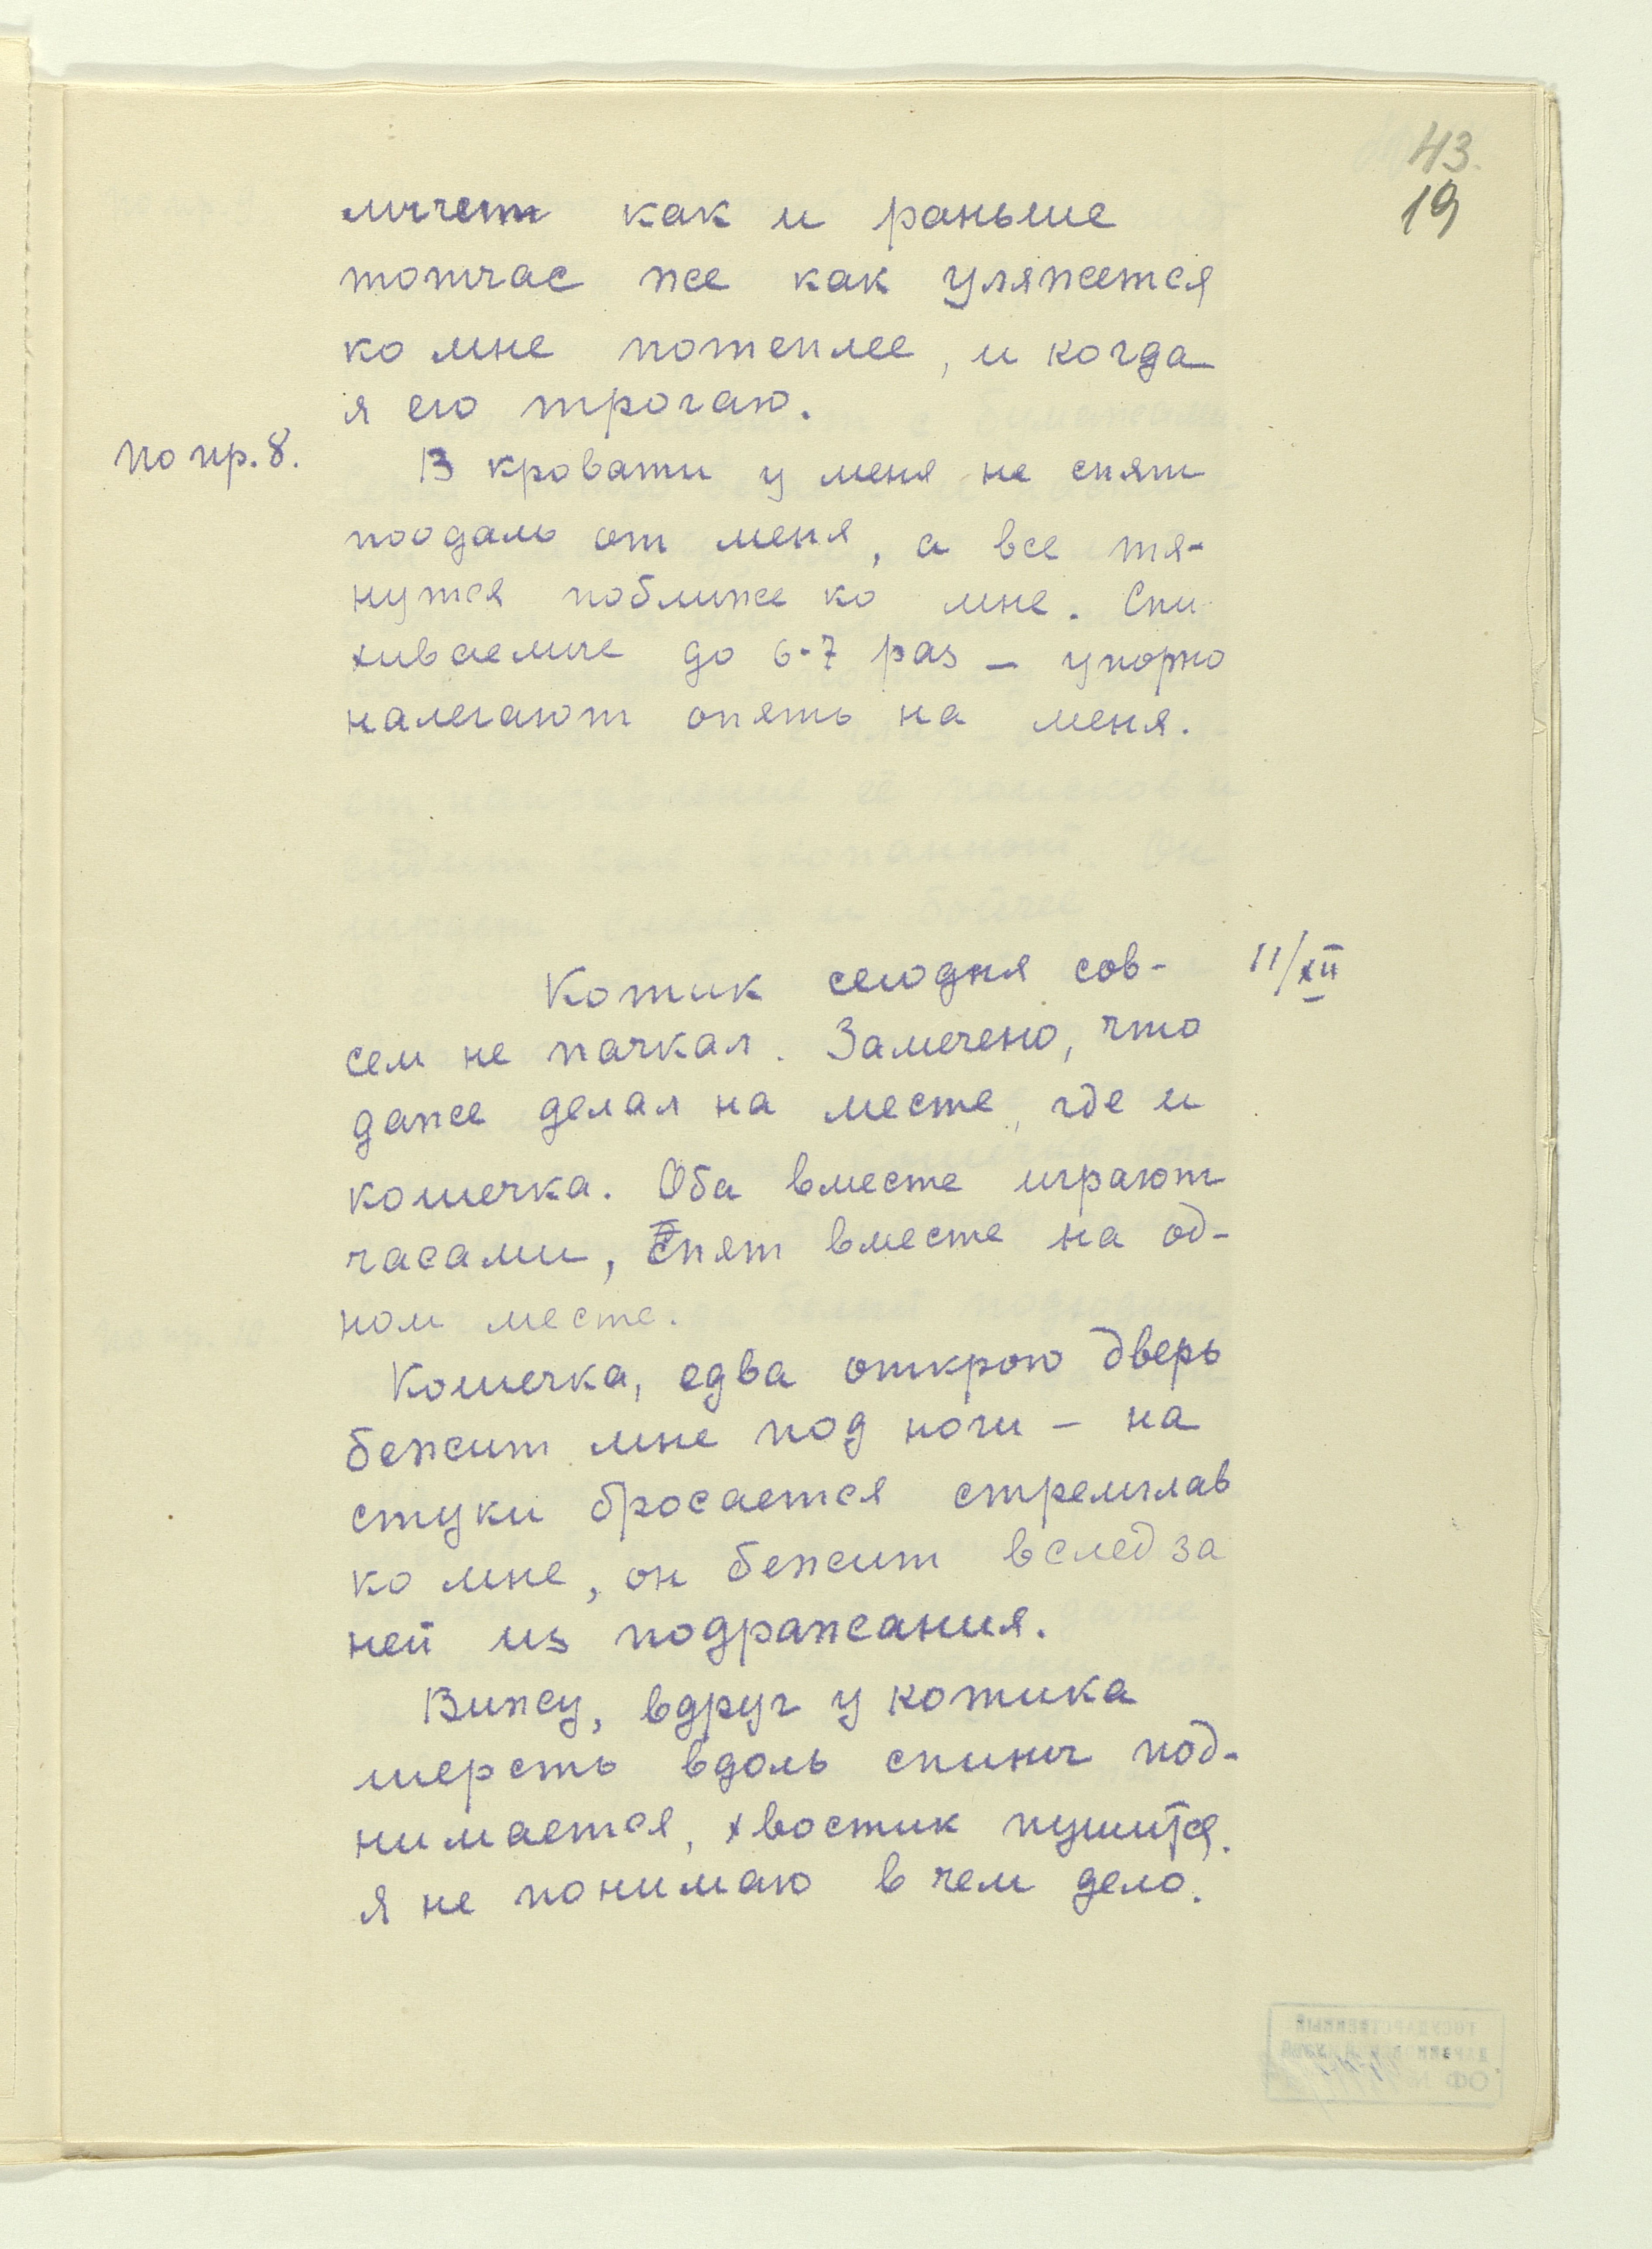 43.
19
лычет как и раньше
тотчас же как уляжется
ко мне потеплее, и когда
я его трогаю.
по пр. 8.
В кровати у меня не спят
поодаль от меня, а все тя-
нутся поближе ко мне. Спи
хиваемые до 6-7 раз – упорно
налегают опять на меня.
11/XII
Котик сегодня сов-
сем не пачкал. Замечено, что
даже делал на месте, где и
кошечка. Оба вместе играют
часами, Спят вместе на од-
ном месте.
Кошечка, едва открою дверь
бежит мне под ноги – на
стуки бросается стремглав
ко мне, он бежит вслед за
ней из подражания.
Вижу, вдруг у котика
шерсть вдоль спины под-
нимается, хвостик пушится.
Я не понимаю в чем дело.
ГОСУДАРСТВЕННЫЙ
ДАРВИНОВСКИЙ МУЗЕЙ
ОФ №